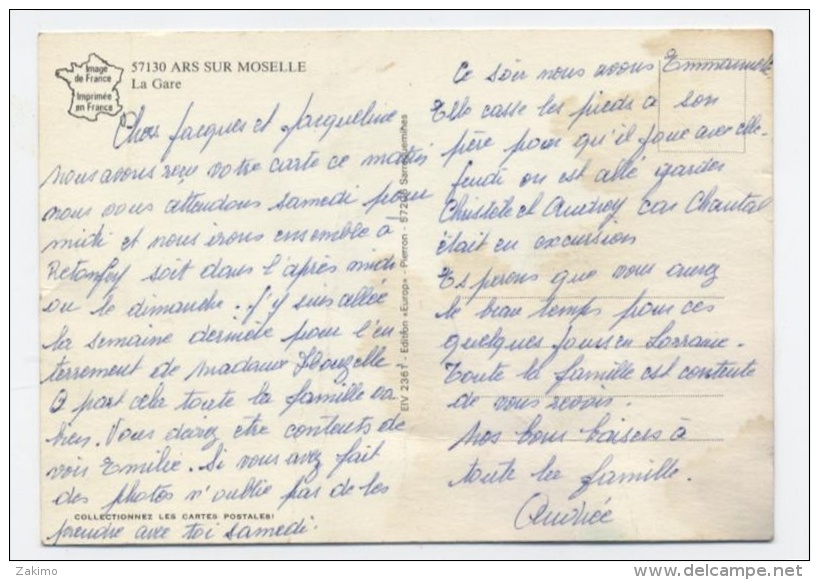 Image
de France
Imprimée
en France
57130 ARS SUR MOSELLE
La Gare
Chers Jacques et Jacqueline
nous avons reçu votre carte ce matin
nous vous attendons samedi pour
midi et nous irons ensemble à
Retonfey soit dans l'après midi
ou le dimanche. J'y suis allée
la semaine dernière pour l'en
terrement de madame
A part cela toute la famille va
bien. Vous devez être contents de
voir Emilie. Si vous avez fait
des photos n'oublie pas de les
prendre avec toi samedi.
COLLECTIONNEZ LES CARTES POSTALES!
EIV 2361 - Edition «Europ» - Pierron - 57206 Sarreguemines
Ce soir nous avons Emmanuelle
Elle casse les pieds à son
père pour qu'il joue avec elle.
Jeudi on est allé garder
Christele et Audrey car Chantal
était en excursion
Esperons que vous aurez
le beau temps pour ces
quelques jours en Lorraine.
Toute la famille est contente
de vous revoir.
Nos bons baisers à
toute la famille.
Andrée
www.delcampe.net
Zakimo